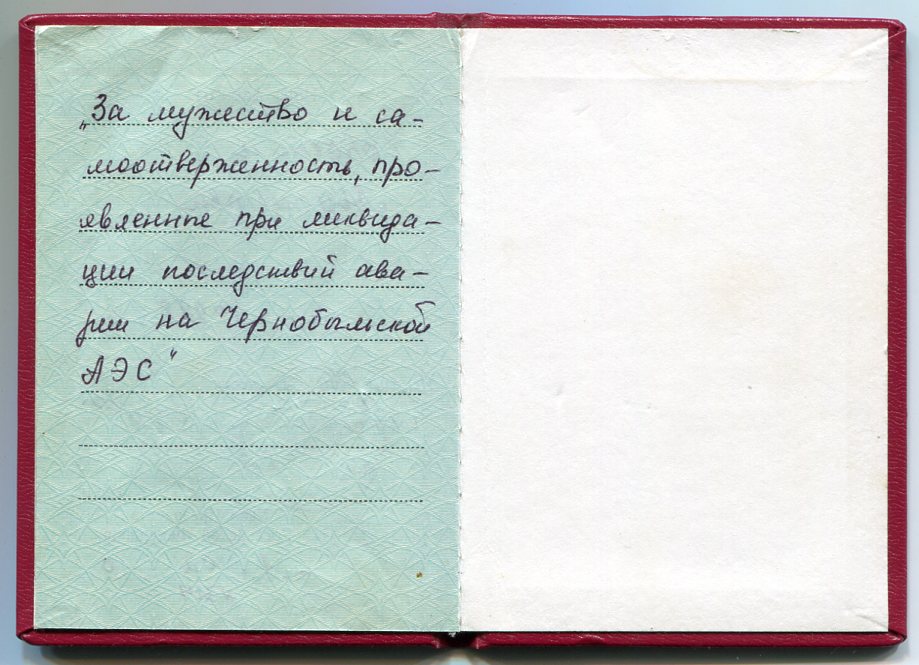 „За мужество и са-
моотверженность, про-
явленные при ликвида-
ции последствий ава-
рии на Чернобыльской
АЭС"